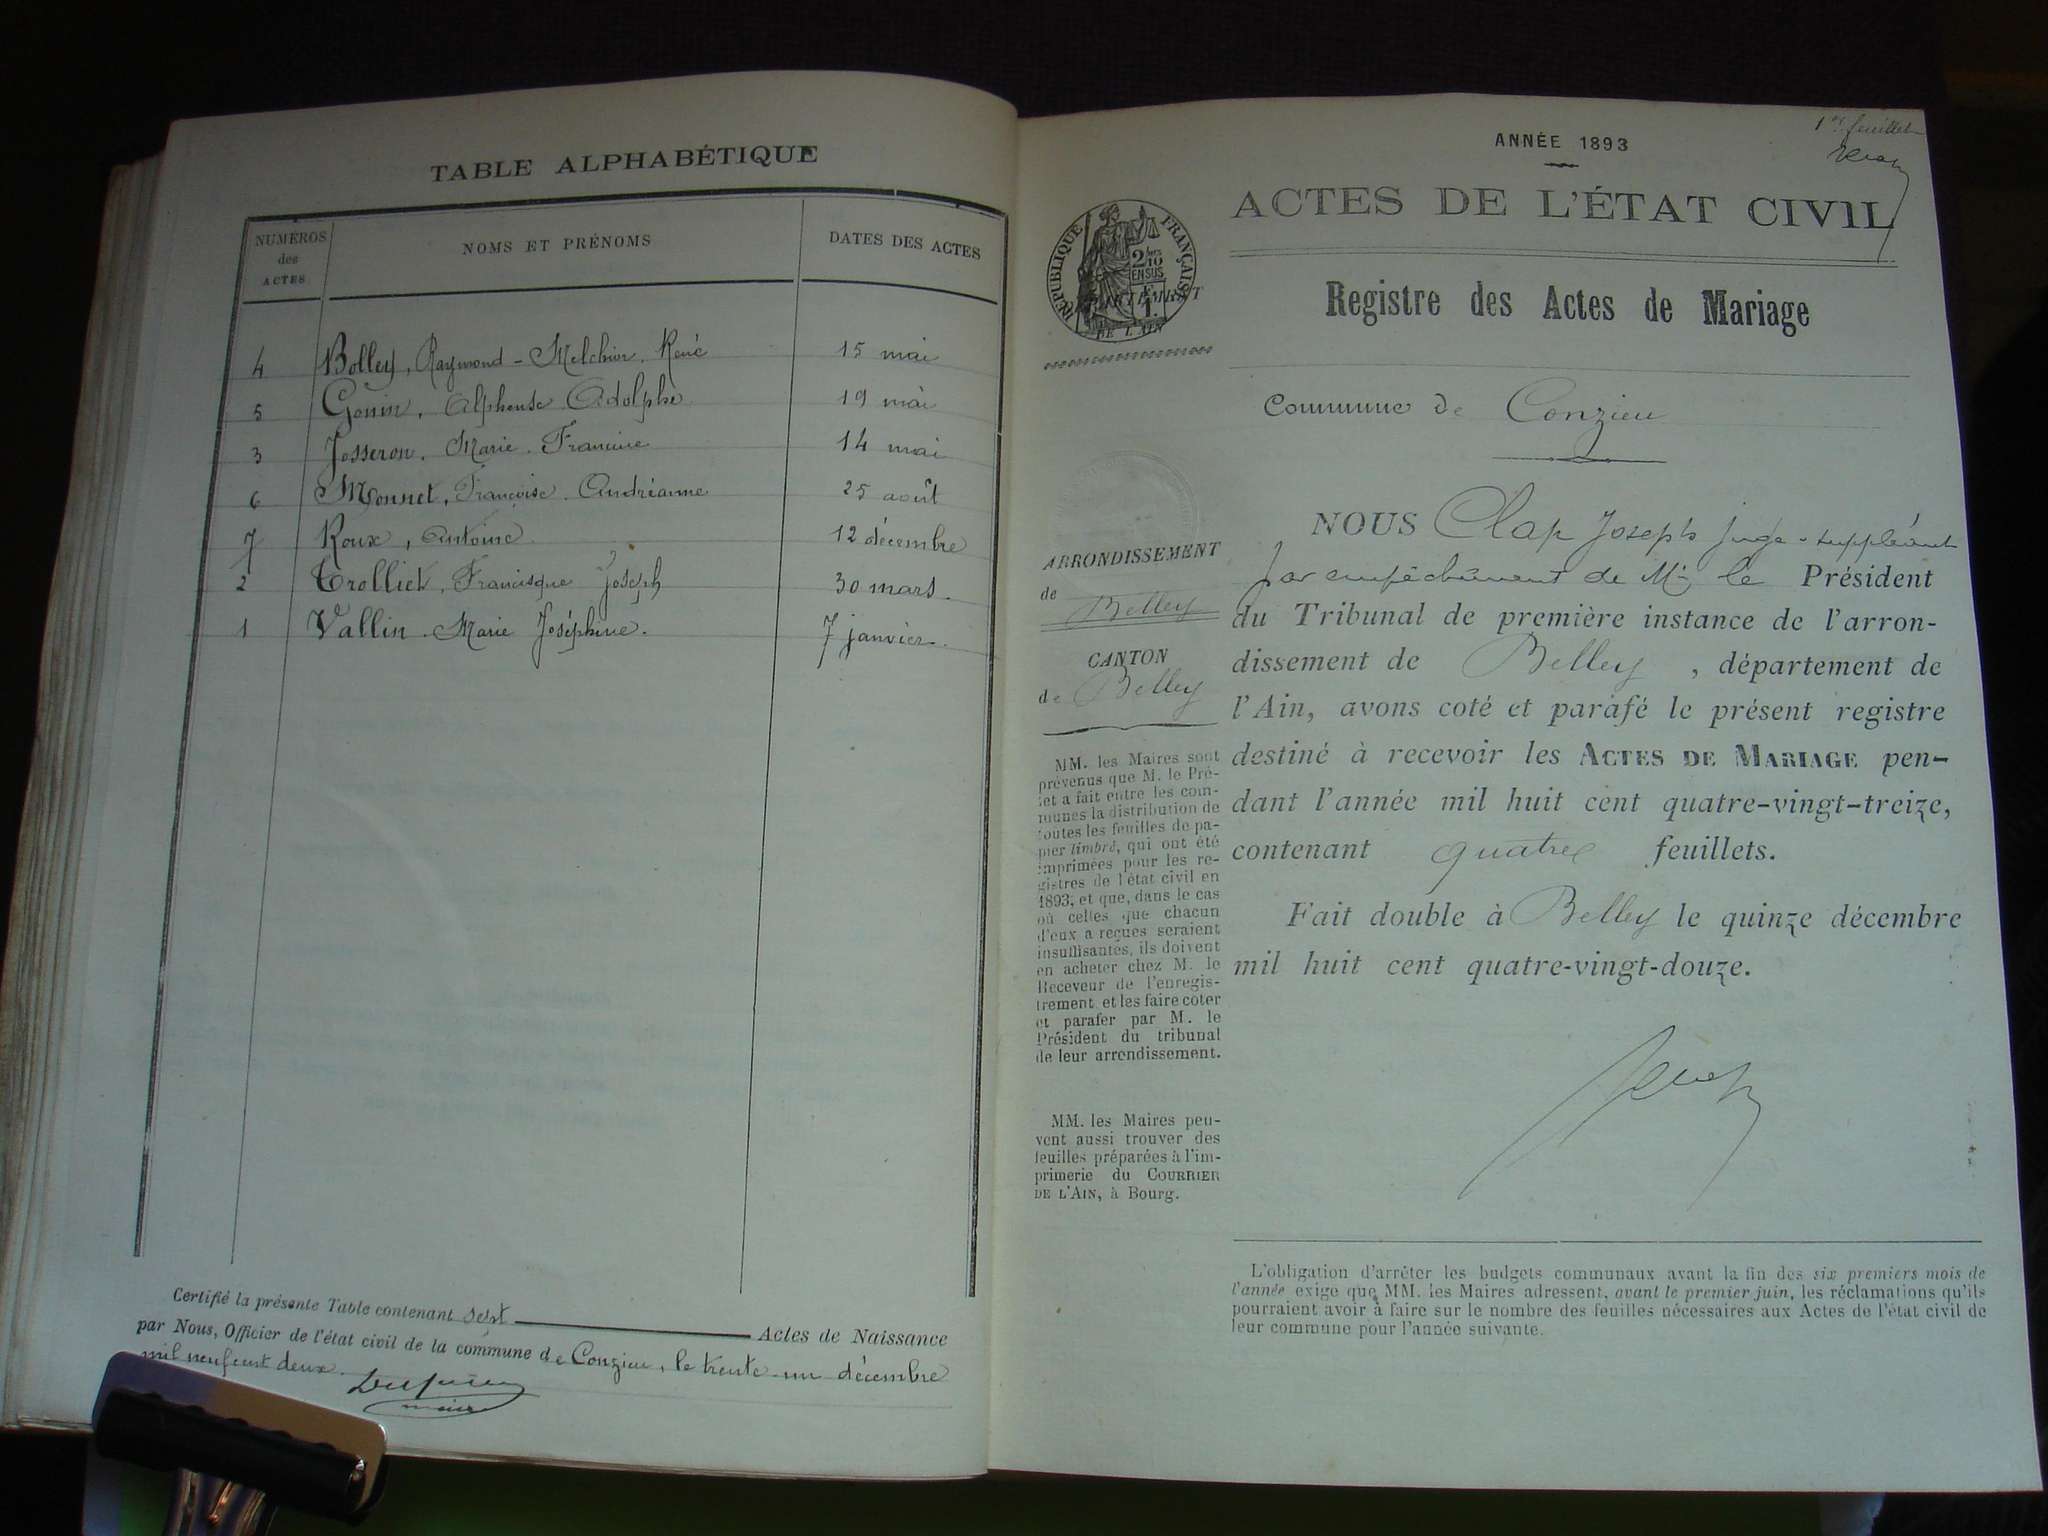 TABLE ALPHABÉTIQUE
NUMÉROS des ACTES
NOMS ET PRÉNOMS
DATES DES ACTES
4 Bolley, Raymond-Melchior. René 15 mai
5 Gonin, Alphonse Adolphe 19 mai
3 Josseron. Marie. Francine 14 mai
6 Monnet, Françoise. Andréanne 25 août
7 Roux, Antoine 12 décembre
2 Trolliet, Francisque Joseph 30 mars.
1 Vallin. Marie Joséphine. 7 janvier.
Certifié la présente Table contenant sept Actes de Naissance
par Nous, Officier de l'état civil de la commune de Conzieu, le trente un décembre
mil neuf cent deux.
maire
1er feuillet
ANNÉE 1893
ACTES DE L'ÉTAT CIVIL
RÉPUBLIQUE FRANÇAISE
2 10
EN SUS
DE L'AIN
Registre des Actes de Mariage
Commune de Conzieu
ARRONDISSEMENT
de Belley
CANTON
de Belley
MM. les Maires sont
prévenus que M. le Pré-
fet a fait entre les com-
munes la distribution de
toutes les feuilles de pa-
pier timbré, qui ont été
imprimées pour les re-
gistres de l'état civil en
1893, et que, dans le cas
où celles que chacun
d'eux a reçues seraient
insuffisantes, ils doivent
en acheter chez M. le
Receveur de l'enregis-
trement et les faire coter
et parafer par M. le
Président du tribunal
de leur arrondissement.
MM. les Maires peu-
vent aussi trouver des
feuilles préparées à l'im-
primerie du COURRIER
DE L'AIN, à Bourg.
NOUS Clap Joseph juge-suppléant
par empêchement de Mr le Président
du Tribunal de première instance de l'arron-
dissement de Belley, département de
l'Ain, avons coté et parafé le présent registre
destiné à recevoir les ACTES DE MARIAGE pen-
dant l'année mil huit cent quatre-vingt-treize,
contenant quatre feuillets.
Fait double à Belley le quinze décembre
mil huit cent quatre-vingt-douze.
L'obligation d'arrêter les budgets communaux avant la fin des six premiers mois de
l'année exige que MM. les Maires adressent, avant le premier juin, les réclamations qu'ils
pourraient avoir à faire sur le nombre des feuilles nécessaires aux Actes de l'état civil de
leur commune pour l'année suivante.